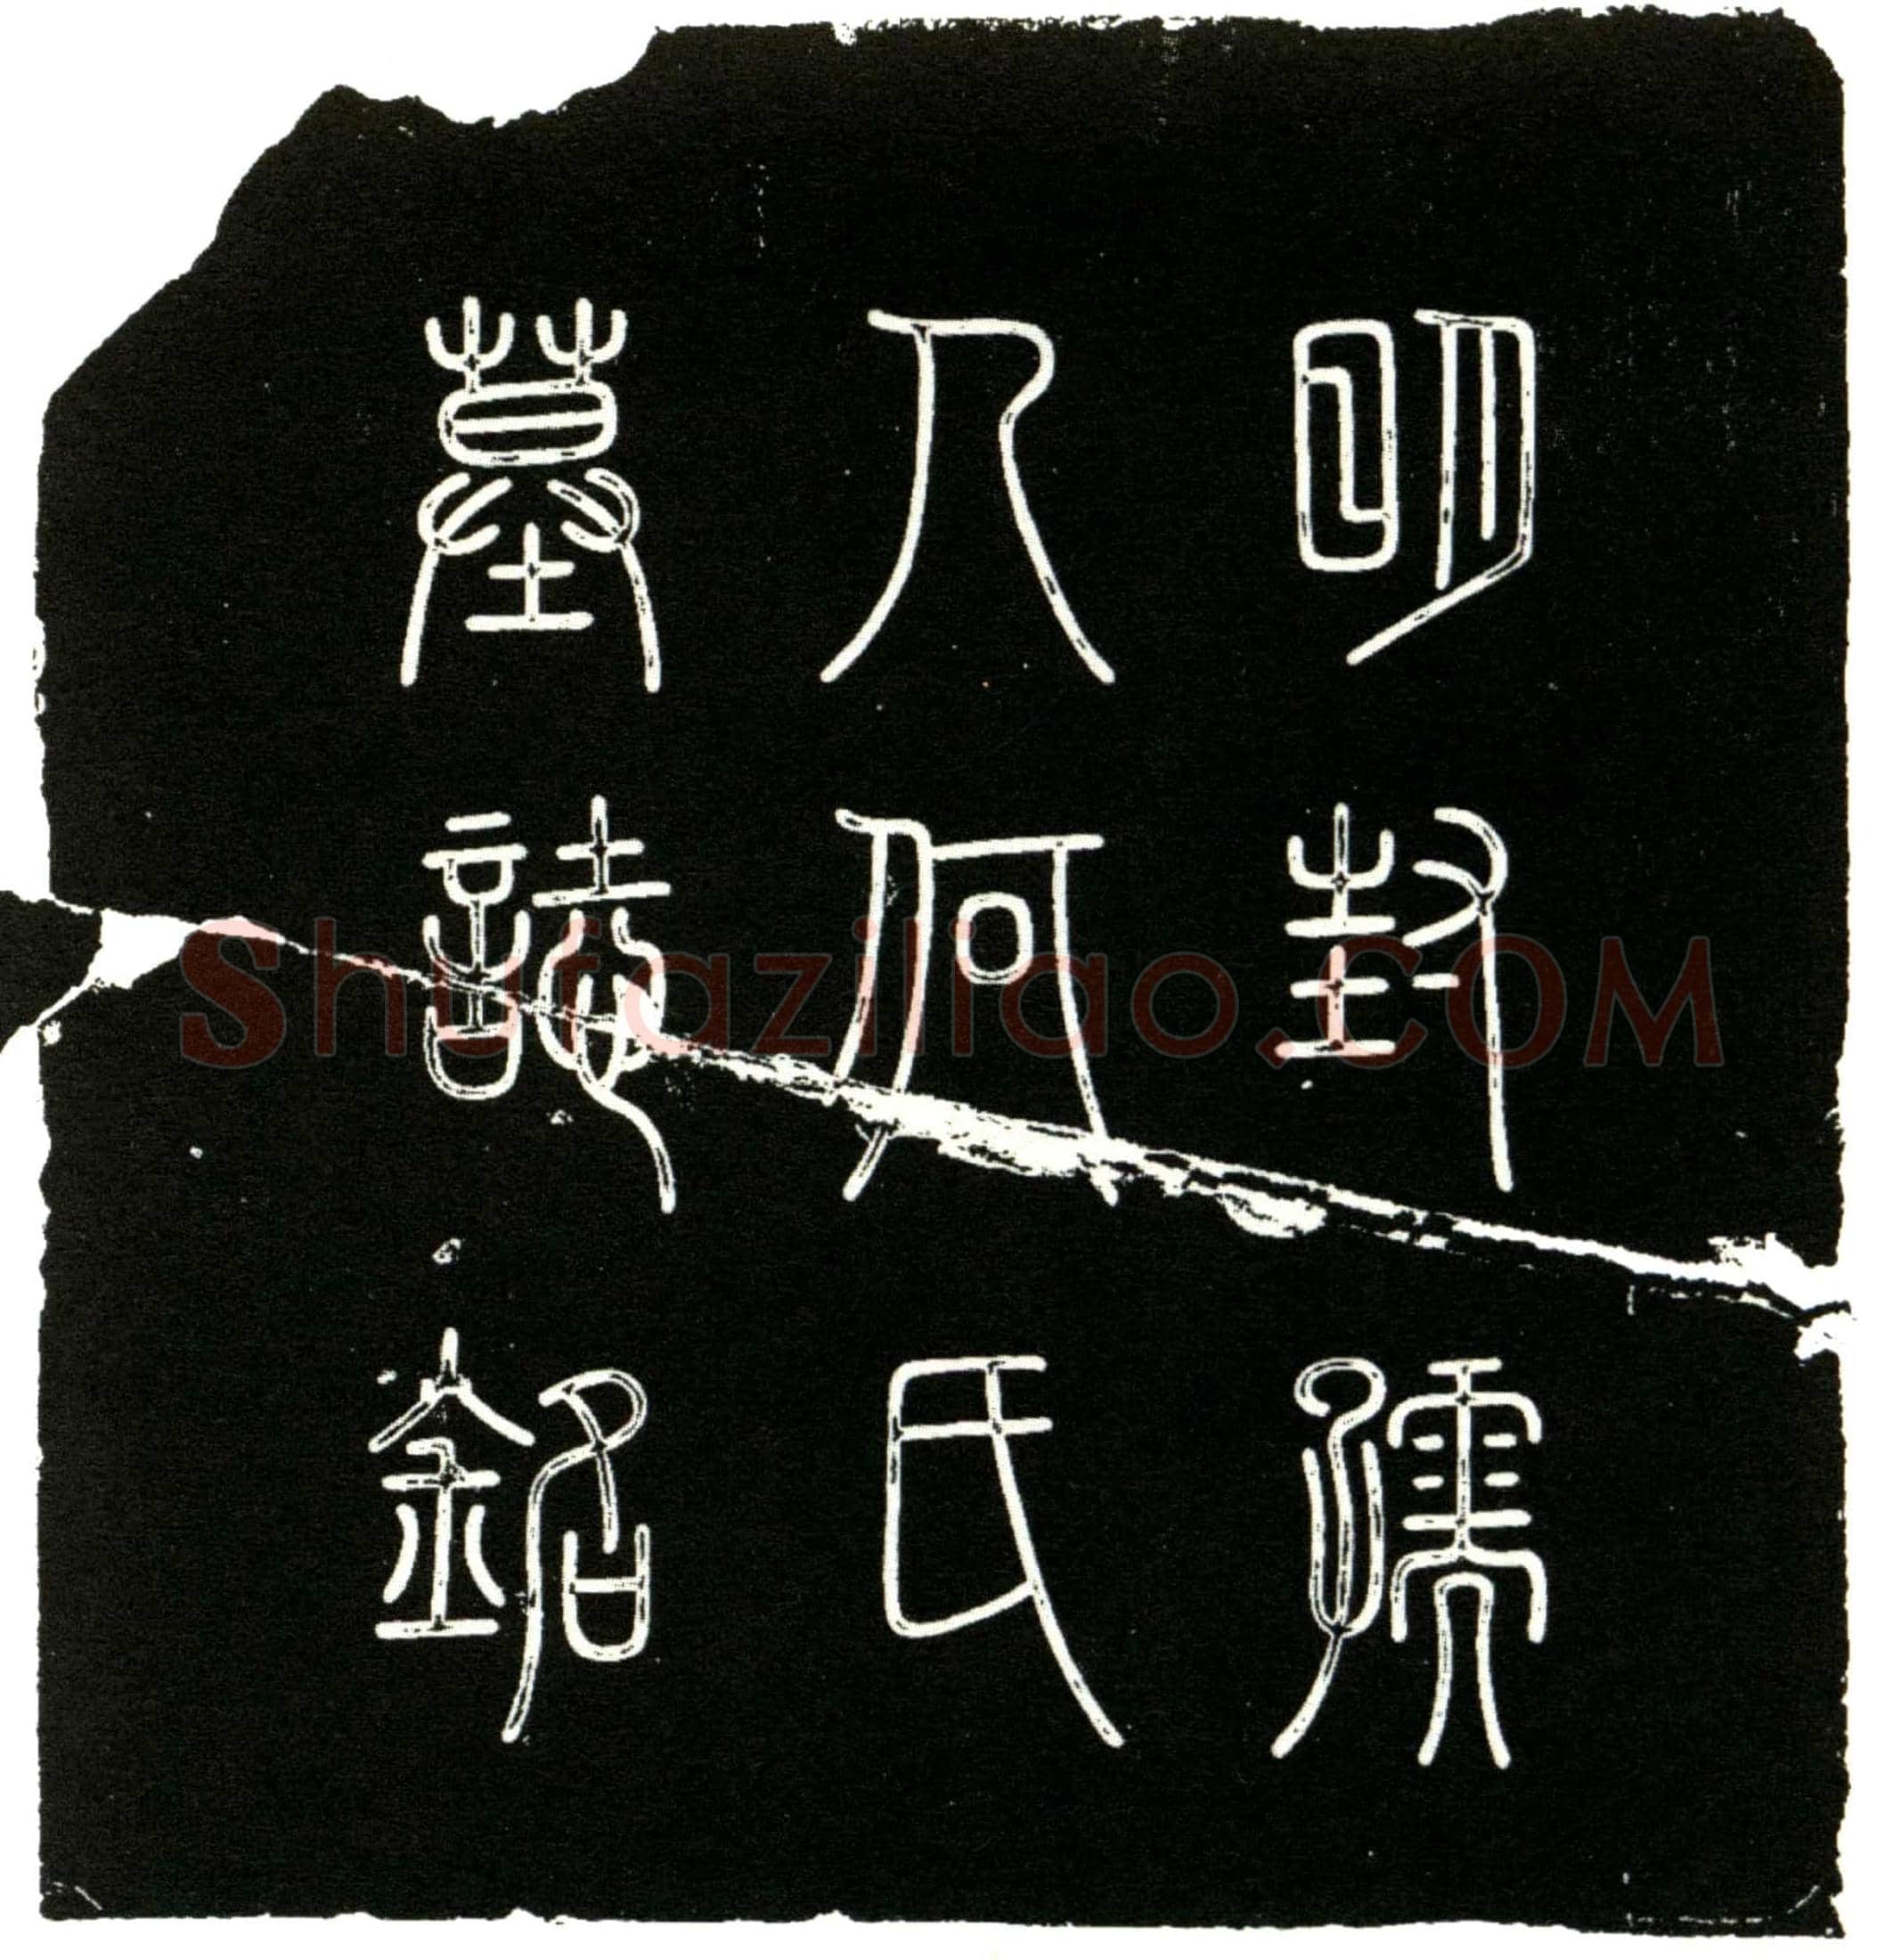 明封孺
人何氏
墓誌銘
Shufaziliao.COM